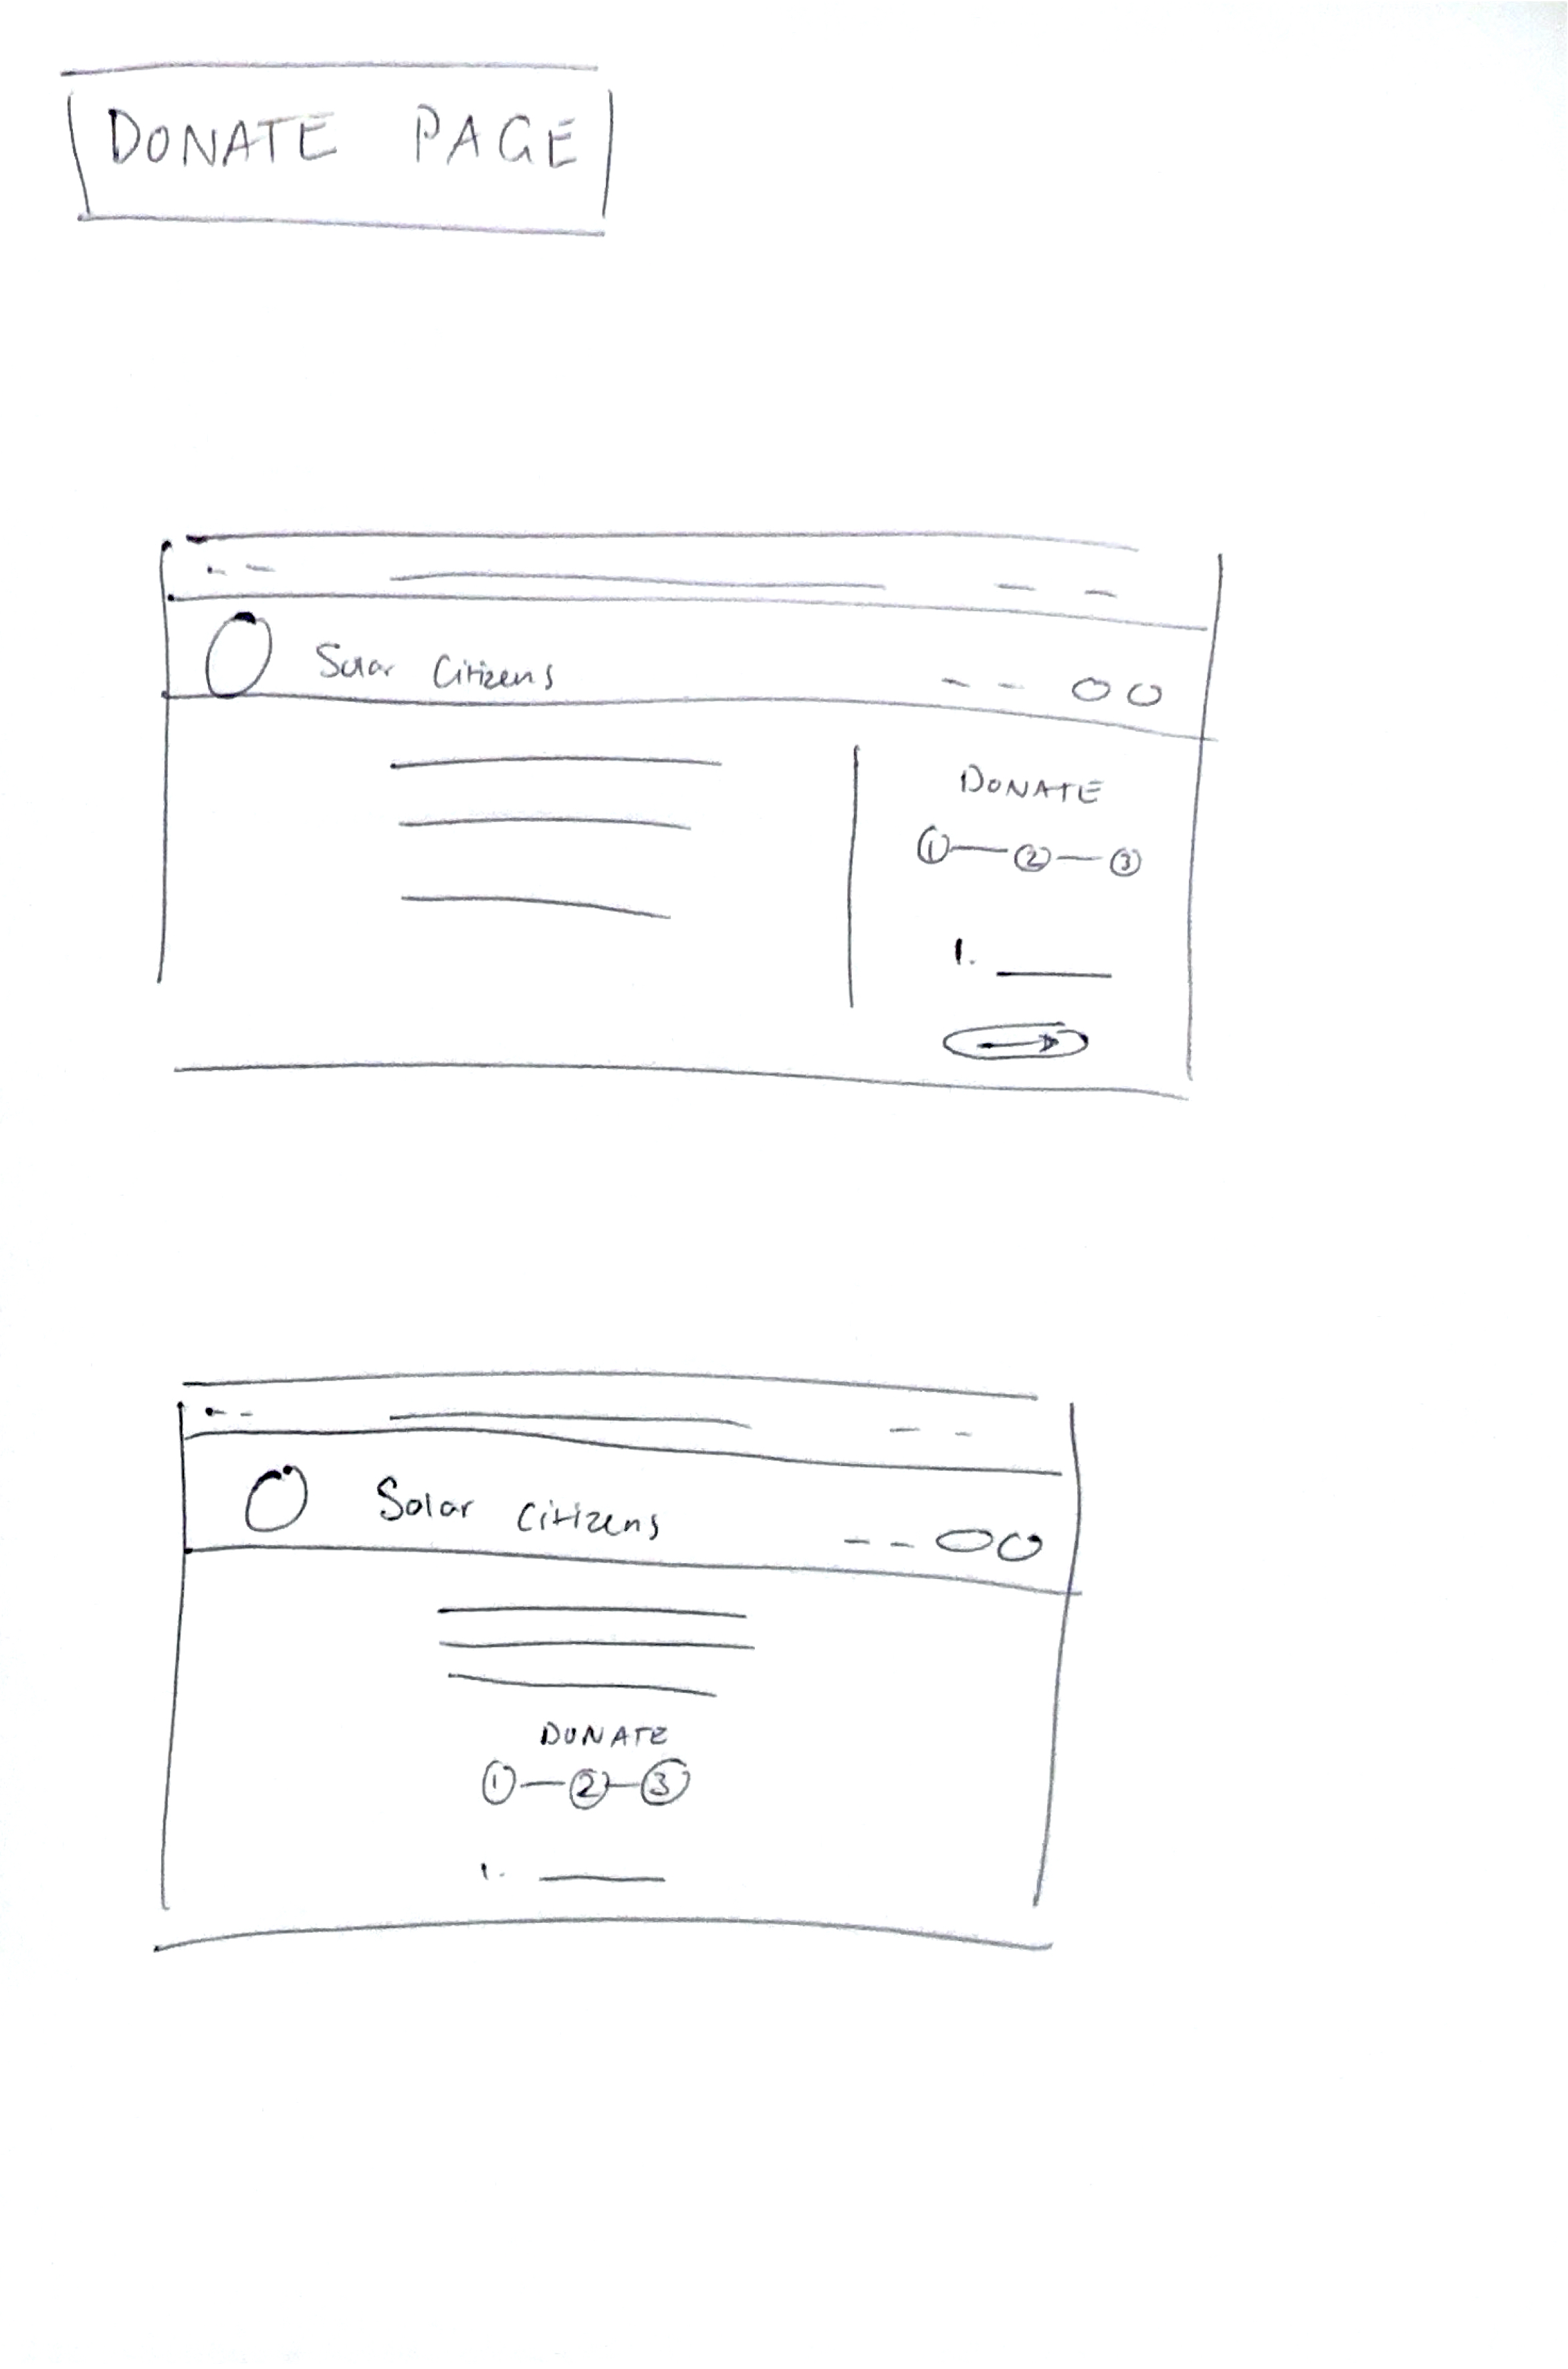 DONATE PAGE
Solar Citizens
DONATE
1 2 3
1.
Solar Citizens
DONATE
1 2 3
1.